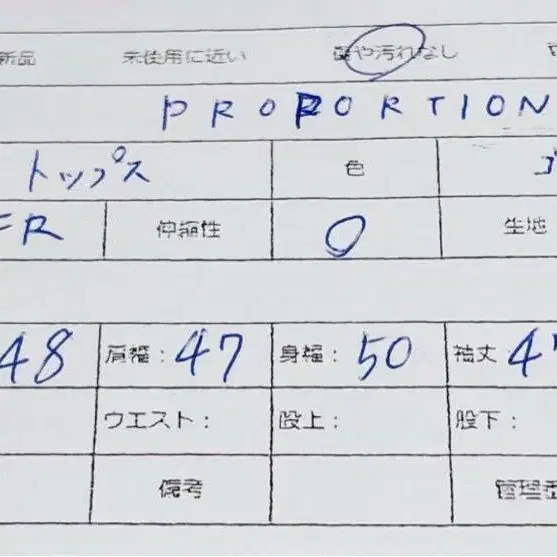 新品 未使用に近い 傷や汚れなし
PROPORTION
トップス 色
FR 伸縮性 〇 生地
48 肩幅: 47 身幅: 50 袖丈 4
ウエスト: 股上: 股下:
備考 管理番